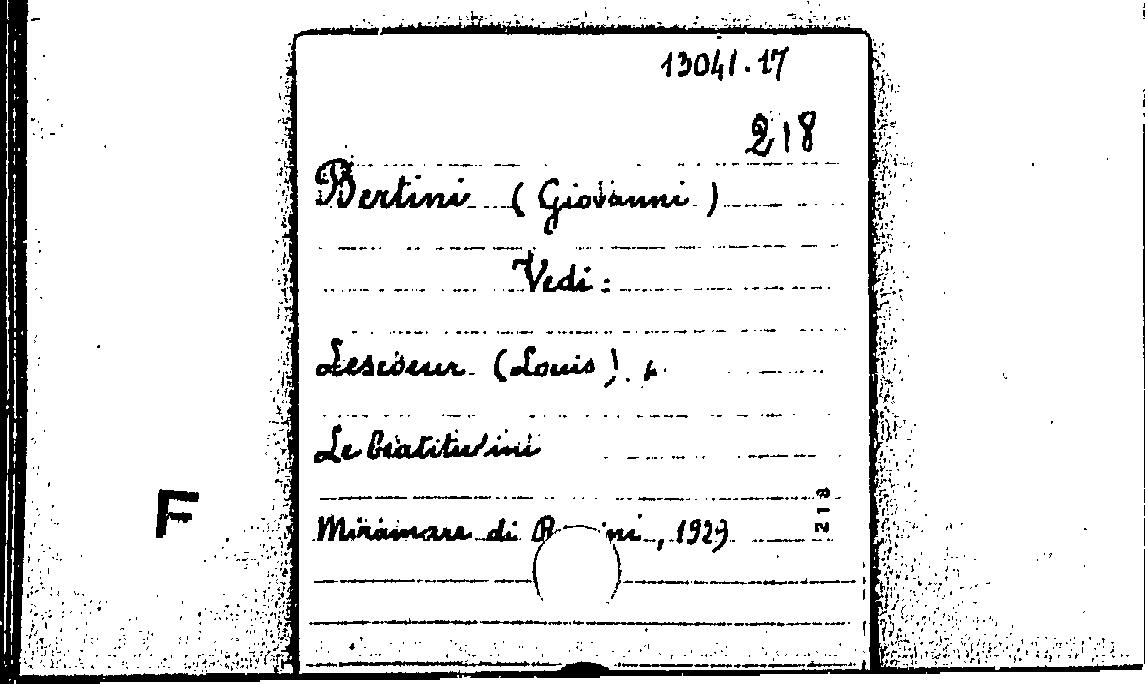 13041.17
218
Bertini (Giovanni)
Vedi:
Lescoeur (Louis).
Le
218
Miramare di R ini, 1929
F